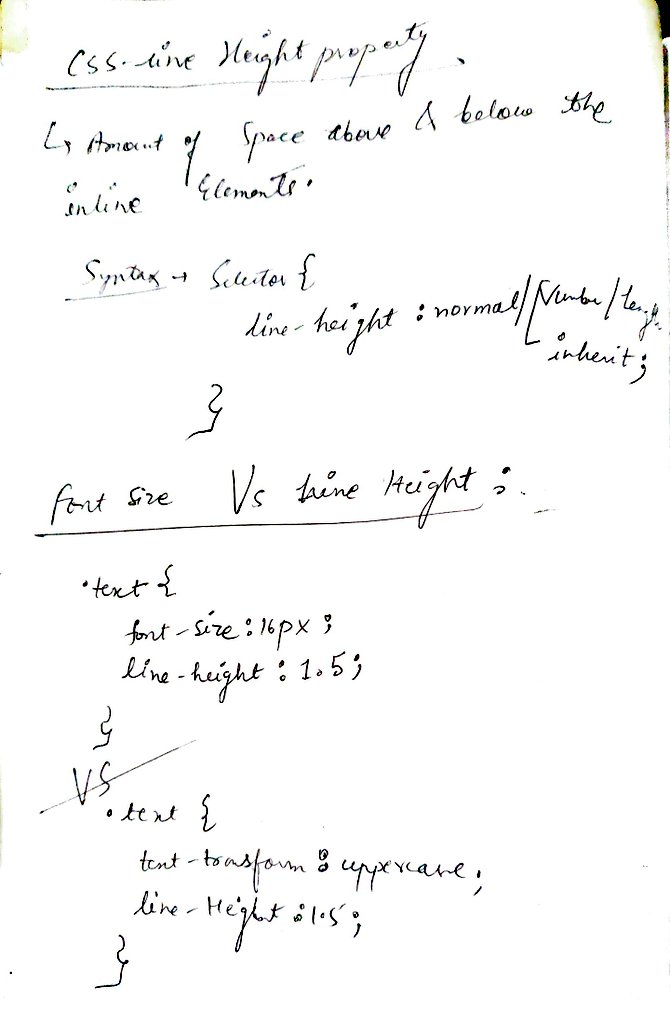 CSS-line Height property.
↳ Amount of Space above & below the
inline Elements.
Syntax → Selector {
line-height : normal/[Number/length
inherit;
}
font size Vs Line Height :
.text {
font-size : 16px ;
line-height : 1.5;
}
VS
.text {
text-transform : uppercase;
line-Height : 1.5;
}